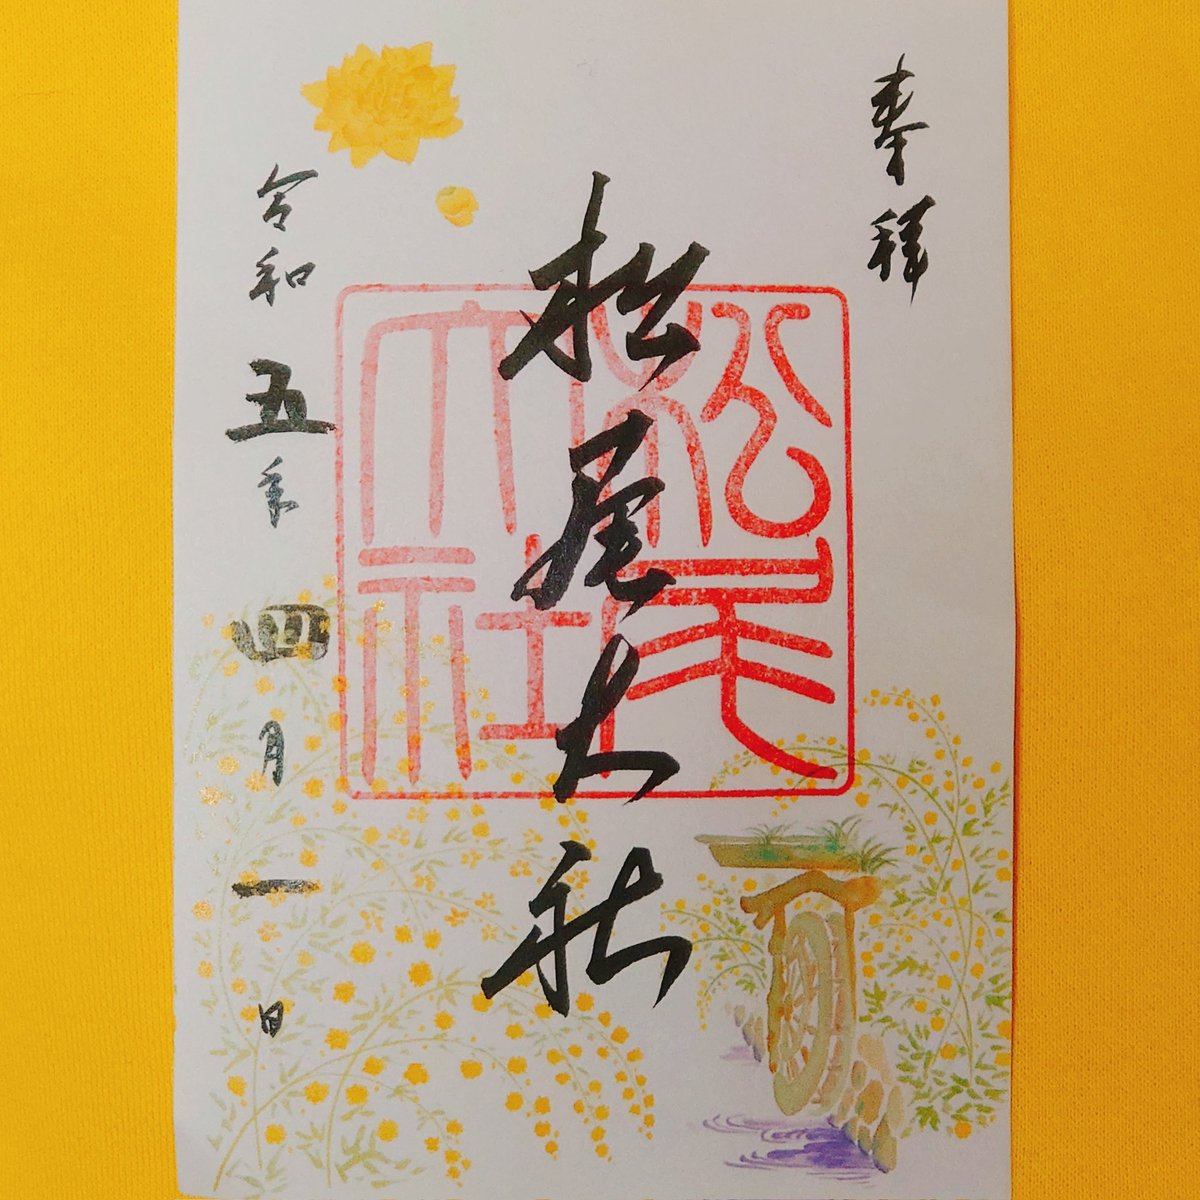 奉拝
松尾大社
松尾大社
令和五年四月一日